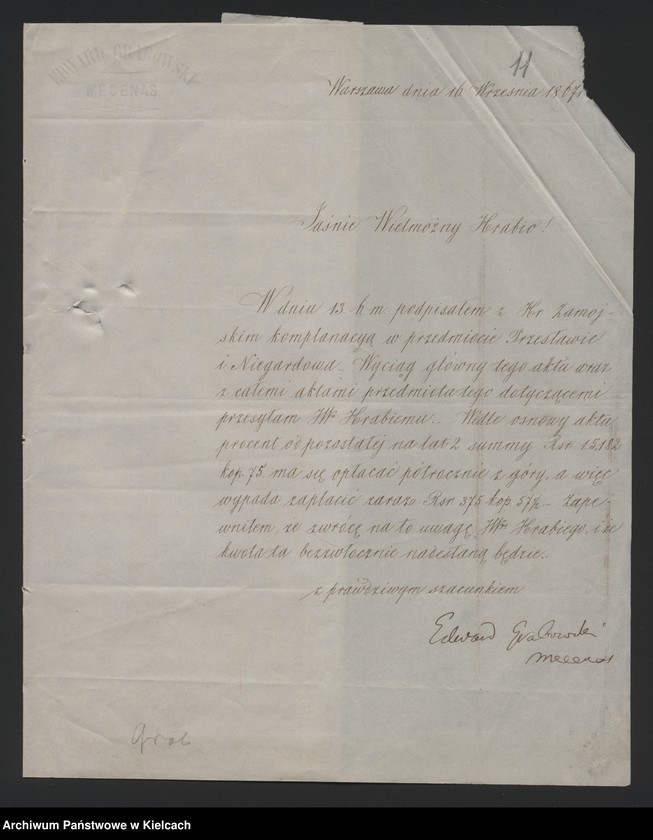 EDWARD GRABOWSKI
MECENAS
11
Warszawa dnia 16 Września 1867
Jaśnie Wielmożny Hrabio!
W dniu 13. h. m. podpisałem z Hr. Zamoj-
skim komplanacyą w przedmiocie Przesławic
i Niegardowa. Wyciąg główny tego aktu wraz
z całemi aktami przedmiotu tego dotyczącemi
przesyłam JWu Hrabiemu. Wedle osnowy aktu,
procent od pozostałej na lat 2 summy Rsr. 15,182
kop. 75. ma się opłacać półrocznie z góry, a więc
wypada zapłacić zaraz Rsr. 375 kop 57½ Zape-
wniłem, że zwrócę na to uwagę JWo Hrabiego, i że
kwota ta bezzwłocznie nadesłaną będzie.
z prawdziwym szacunkiem
Edward Grabowski
Mecenas
Archiwum Państwowe w Kielcach